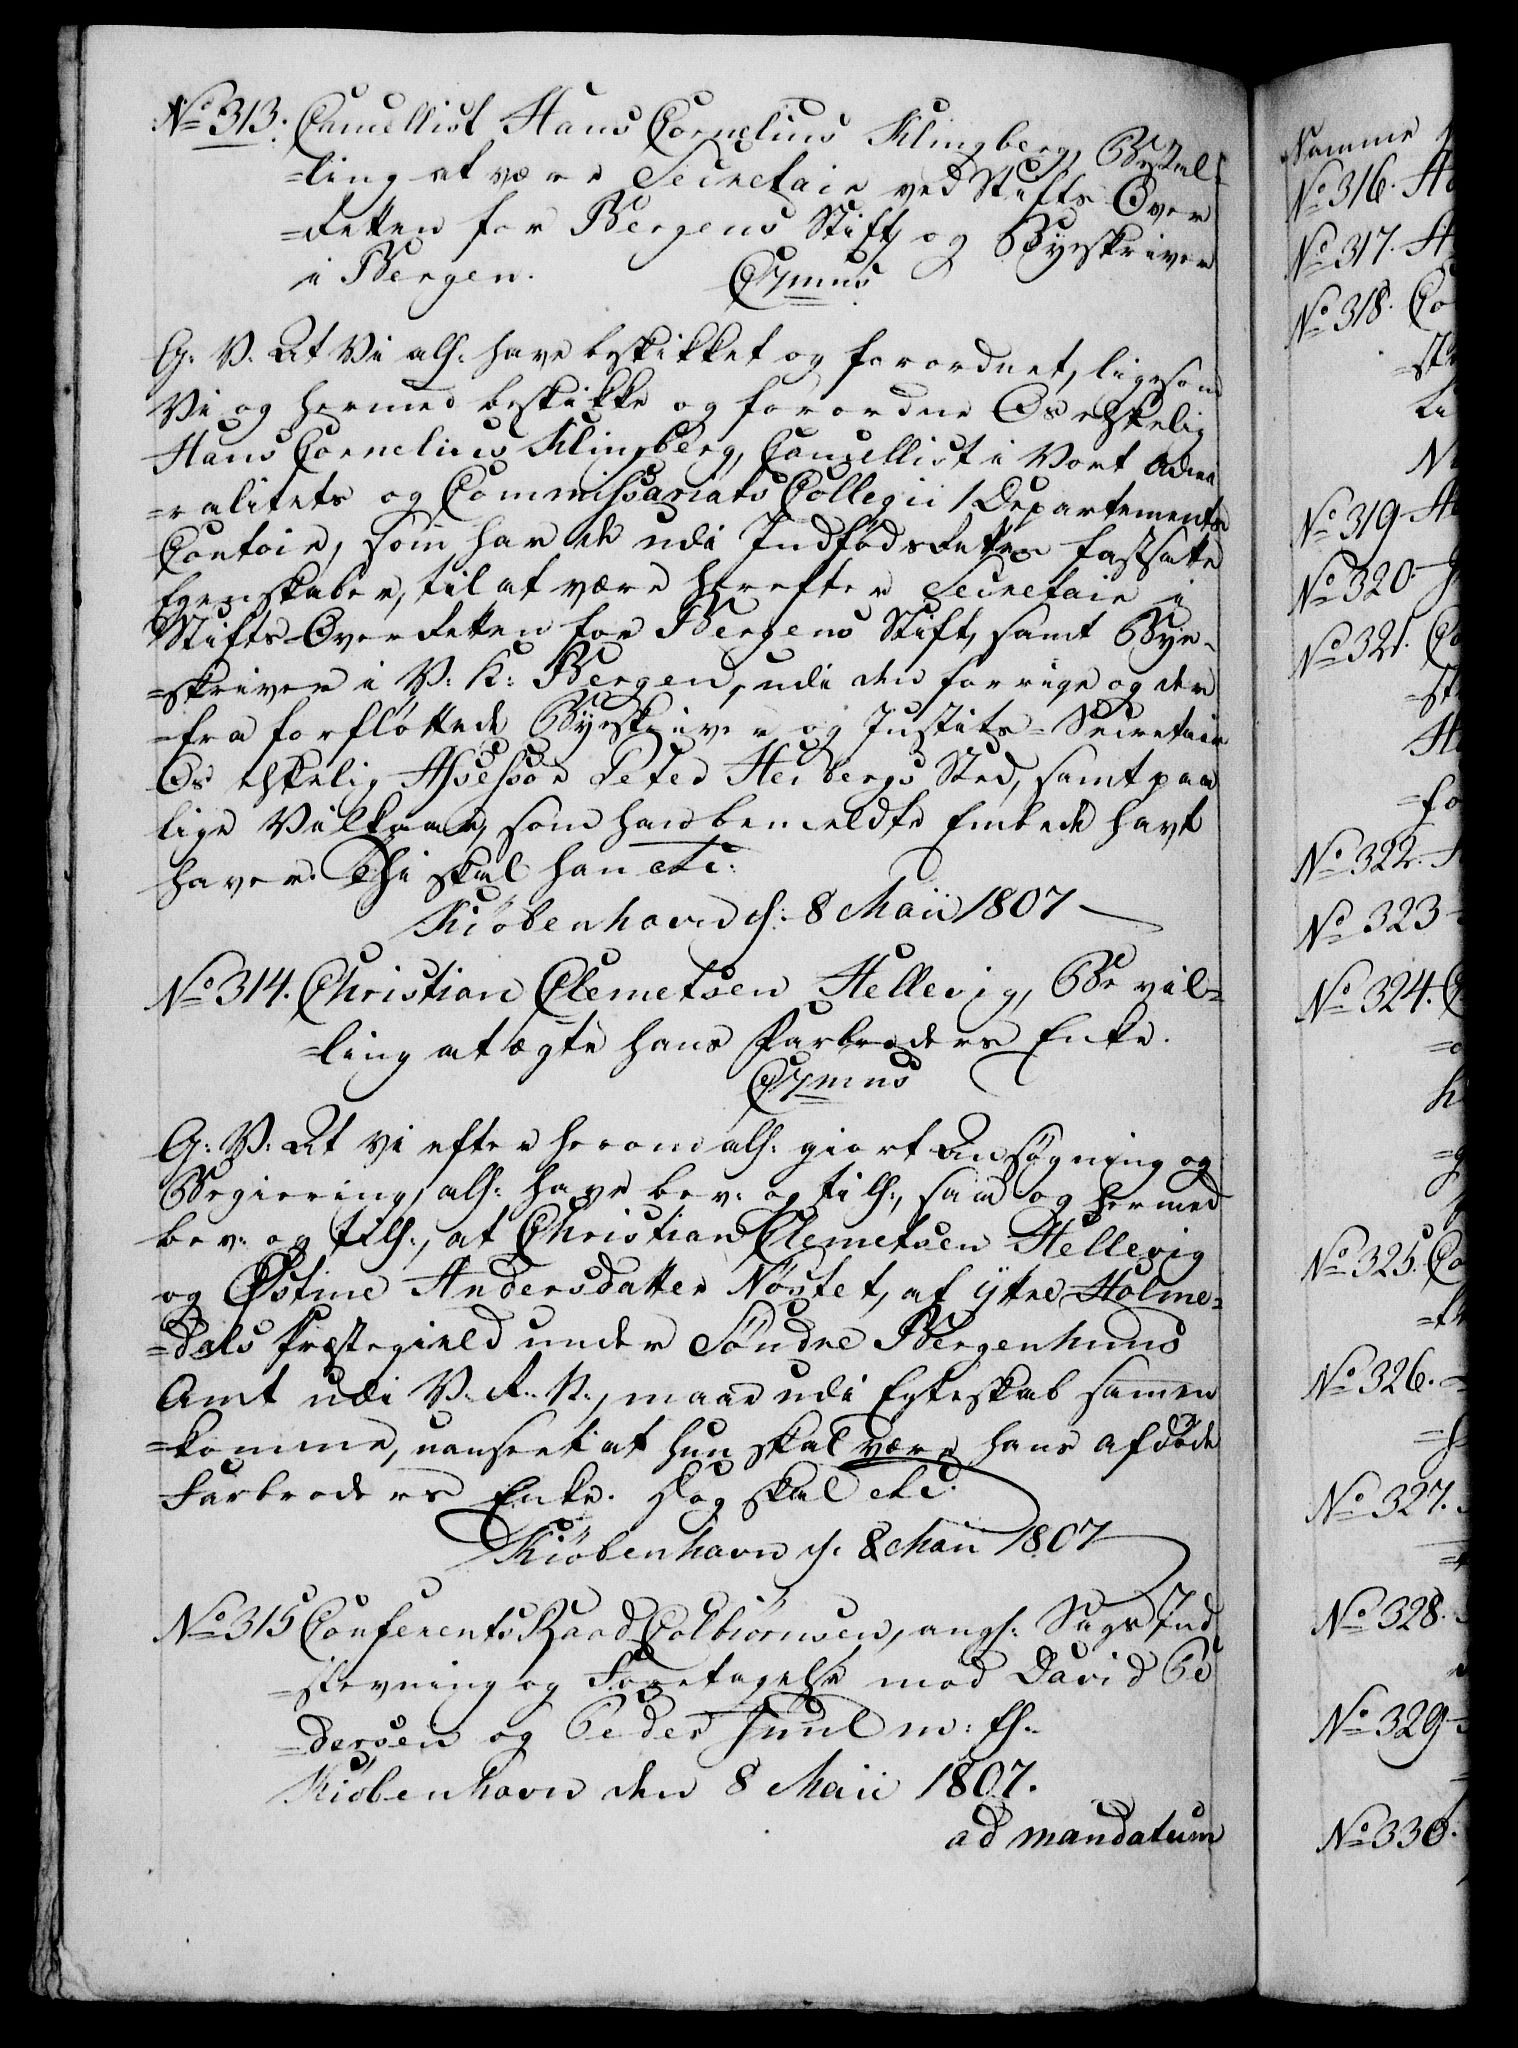 No 313. Cancellist Hans Cornelius Klingberg, Bestal-
=ling at være Secretair ved Stifts Over
=Retten for Bergens Stift og Byeskriver
i Bergen.
C7mus
G: V. At Vi alh: have beskikket og forordnet, ligesom
Vi og hermed beskikke og forordne Os elskelig
Hans Cornelius Klingberg, Cancellist i Vort Admi
=ralitets og Commissariats Collegii 1 Departements
Contoir, som har de udi Indfødsretten fastsatte
Egenskaber, til at være herefter Secretair i
Stifts-Overretten for Bergens Stift, samt Bye-
=skriver i V: K: Bergen, udi den forrige og der
=fra forflöttede Byeskriver og Justits-Secretair
Os elskelig Assessor Peter Heibergs Sted, samt paa
lige Vilkaar, som han bemeldte Embede havt
haver. Thi skal han etc:
Kiøbenhavn d: 8 Maii 1807
No 314. Christian Clemetsen Hellevig, Bevil=
=ling at ægte hans Farbroders Enke.
C7mus
G: V: At Vi efter herom alh: giort Ansøgning og
Begiering, alh: have bev: og till:, saa og hermed
bev: og till:, at Christian Clemetsen Hellevig
og Østine Andersdatter Nöstet, af ijttre Holme=
=dals Præstegield under Söndre Bergenhuus
Amt udi V. R. N., maae udi Egteskab sammen
=komme, uanseet at hun skal være hans afdøde
Farbroders Enke. Dog skal etc.
Kiøbenhavn d. 8 Maii 1807
No 315 ConferentsRaad Colbiörnsen, angl: Sags Ind
=stevning og Foretagelse mod David Pe
=dersen og Peder Juul m: fl.
Kiøbenhavn den 8 Maii 1807.
ad mandatum
Samme
No 316. H
No 317. H
No 318. Co
No 319
No 320.
No 321. Co
No 322.
No 323
No 324. C
No 325. Co
No 326.
No 327.
No 328.
No 329
No 330.